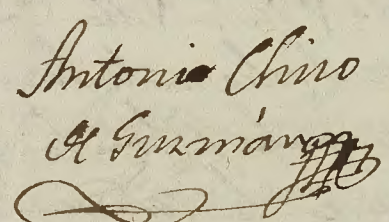 Antonio Chiro
de Guzmán